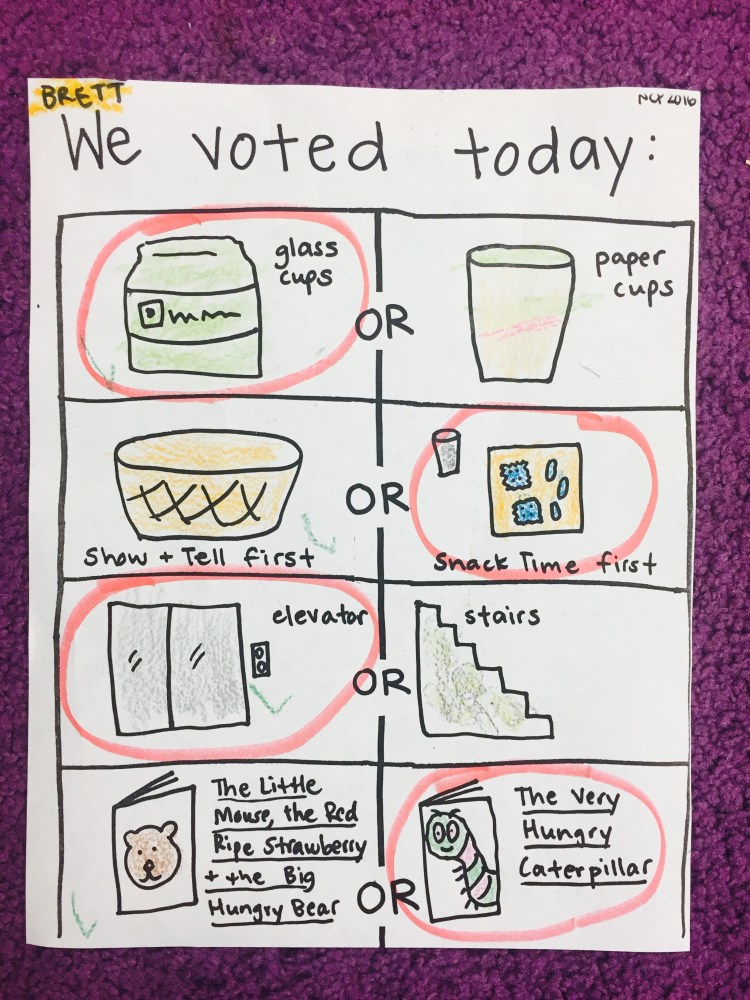 BRETT
We voted today:
glass
cups
OR
paper
cups
Show + Tell first
OR
Snack Time first
elevator
OR
stairs
The Little
Mouse, the Red
Ripe Strawberry
+ the Big
Hungry Bear
OR
The Very
Hungry
Caterpillar